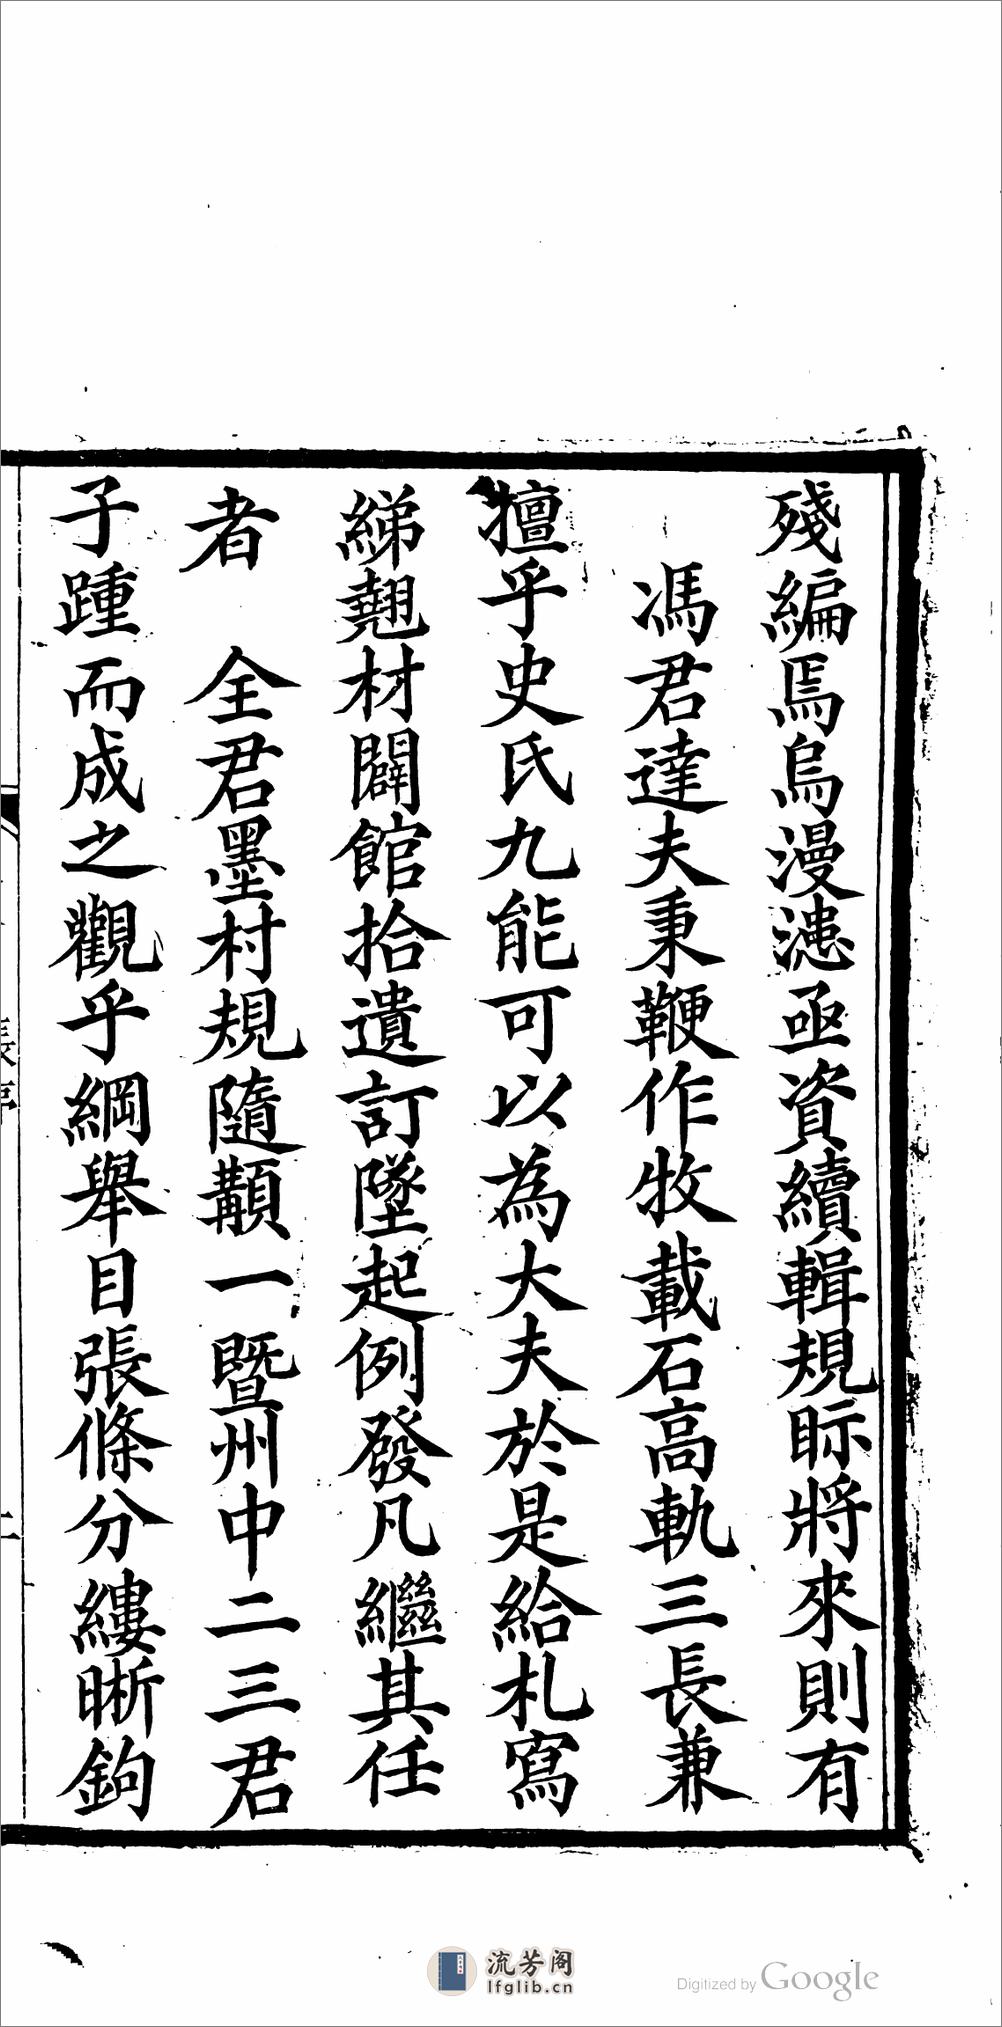 殘編焉烏漫漶亟資續輯規眎將來則有
馮君達夫秉鞭作牧載石高軌三長兼
擅乎史氏九能可以為大夫於是給札寫
綈翹材闢館拾遺訂墜起例發凡繼其任
者　全君墨村規隨顜一暨州中二三君
子踵而成之觀乎綱舉目張條分縷晰鉤
流芳阁
lfglib.cn
Digitized by Google